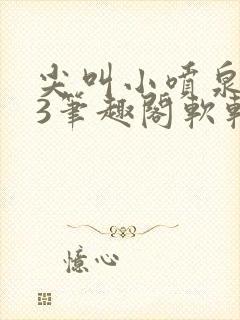 尖叫小喷泉
3笔趣阁软
憶心